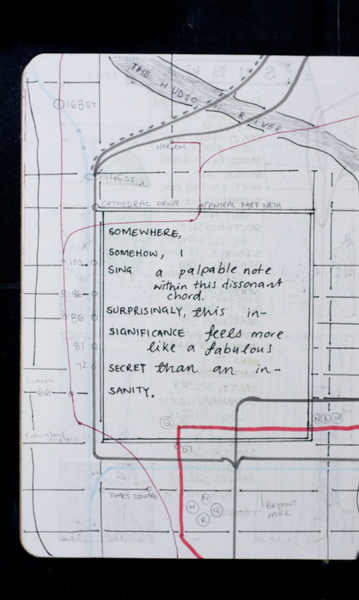 THE HUDSON RIVER
168 ST
HARLEM
145 ST
CATHEDRAL PKWY
CENTRAL PARK NRTH
SOMEWHERE,
SOMEHOW, I
SING a palpable note
within this dissonant
chord.
SURPRISINGLY, this in-
SIGNIFICANCE feels more
like a fabulous
SECRET than an in-
SANITY.
103
96
86
81
72
66
Q
57
TIMES SQUARE
N
R
BRYANT
PARK